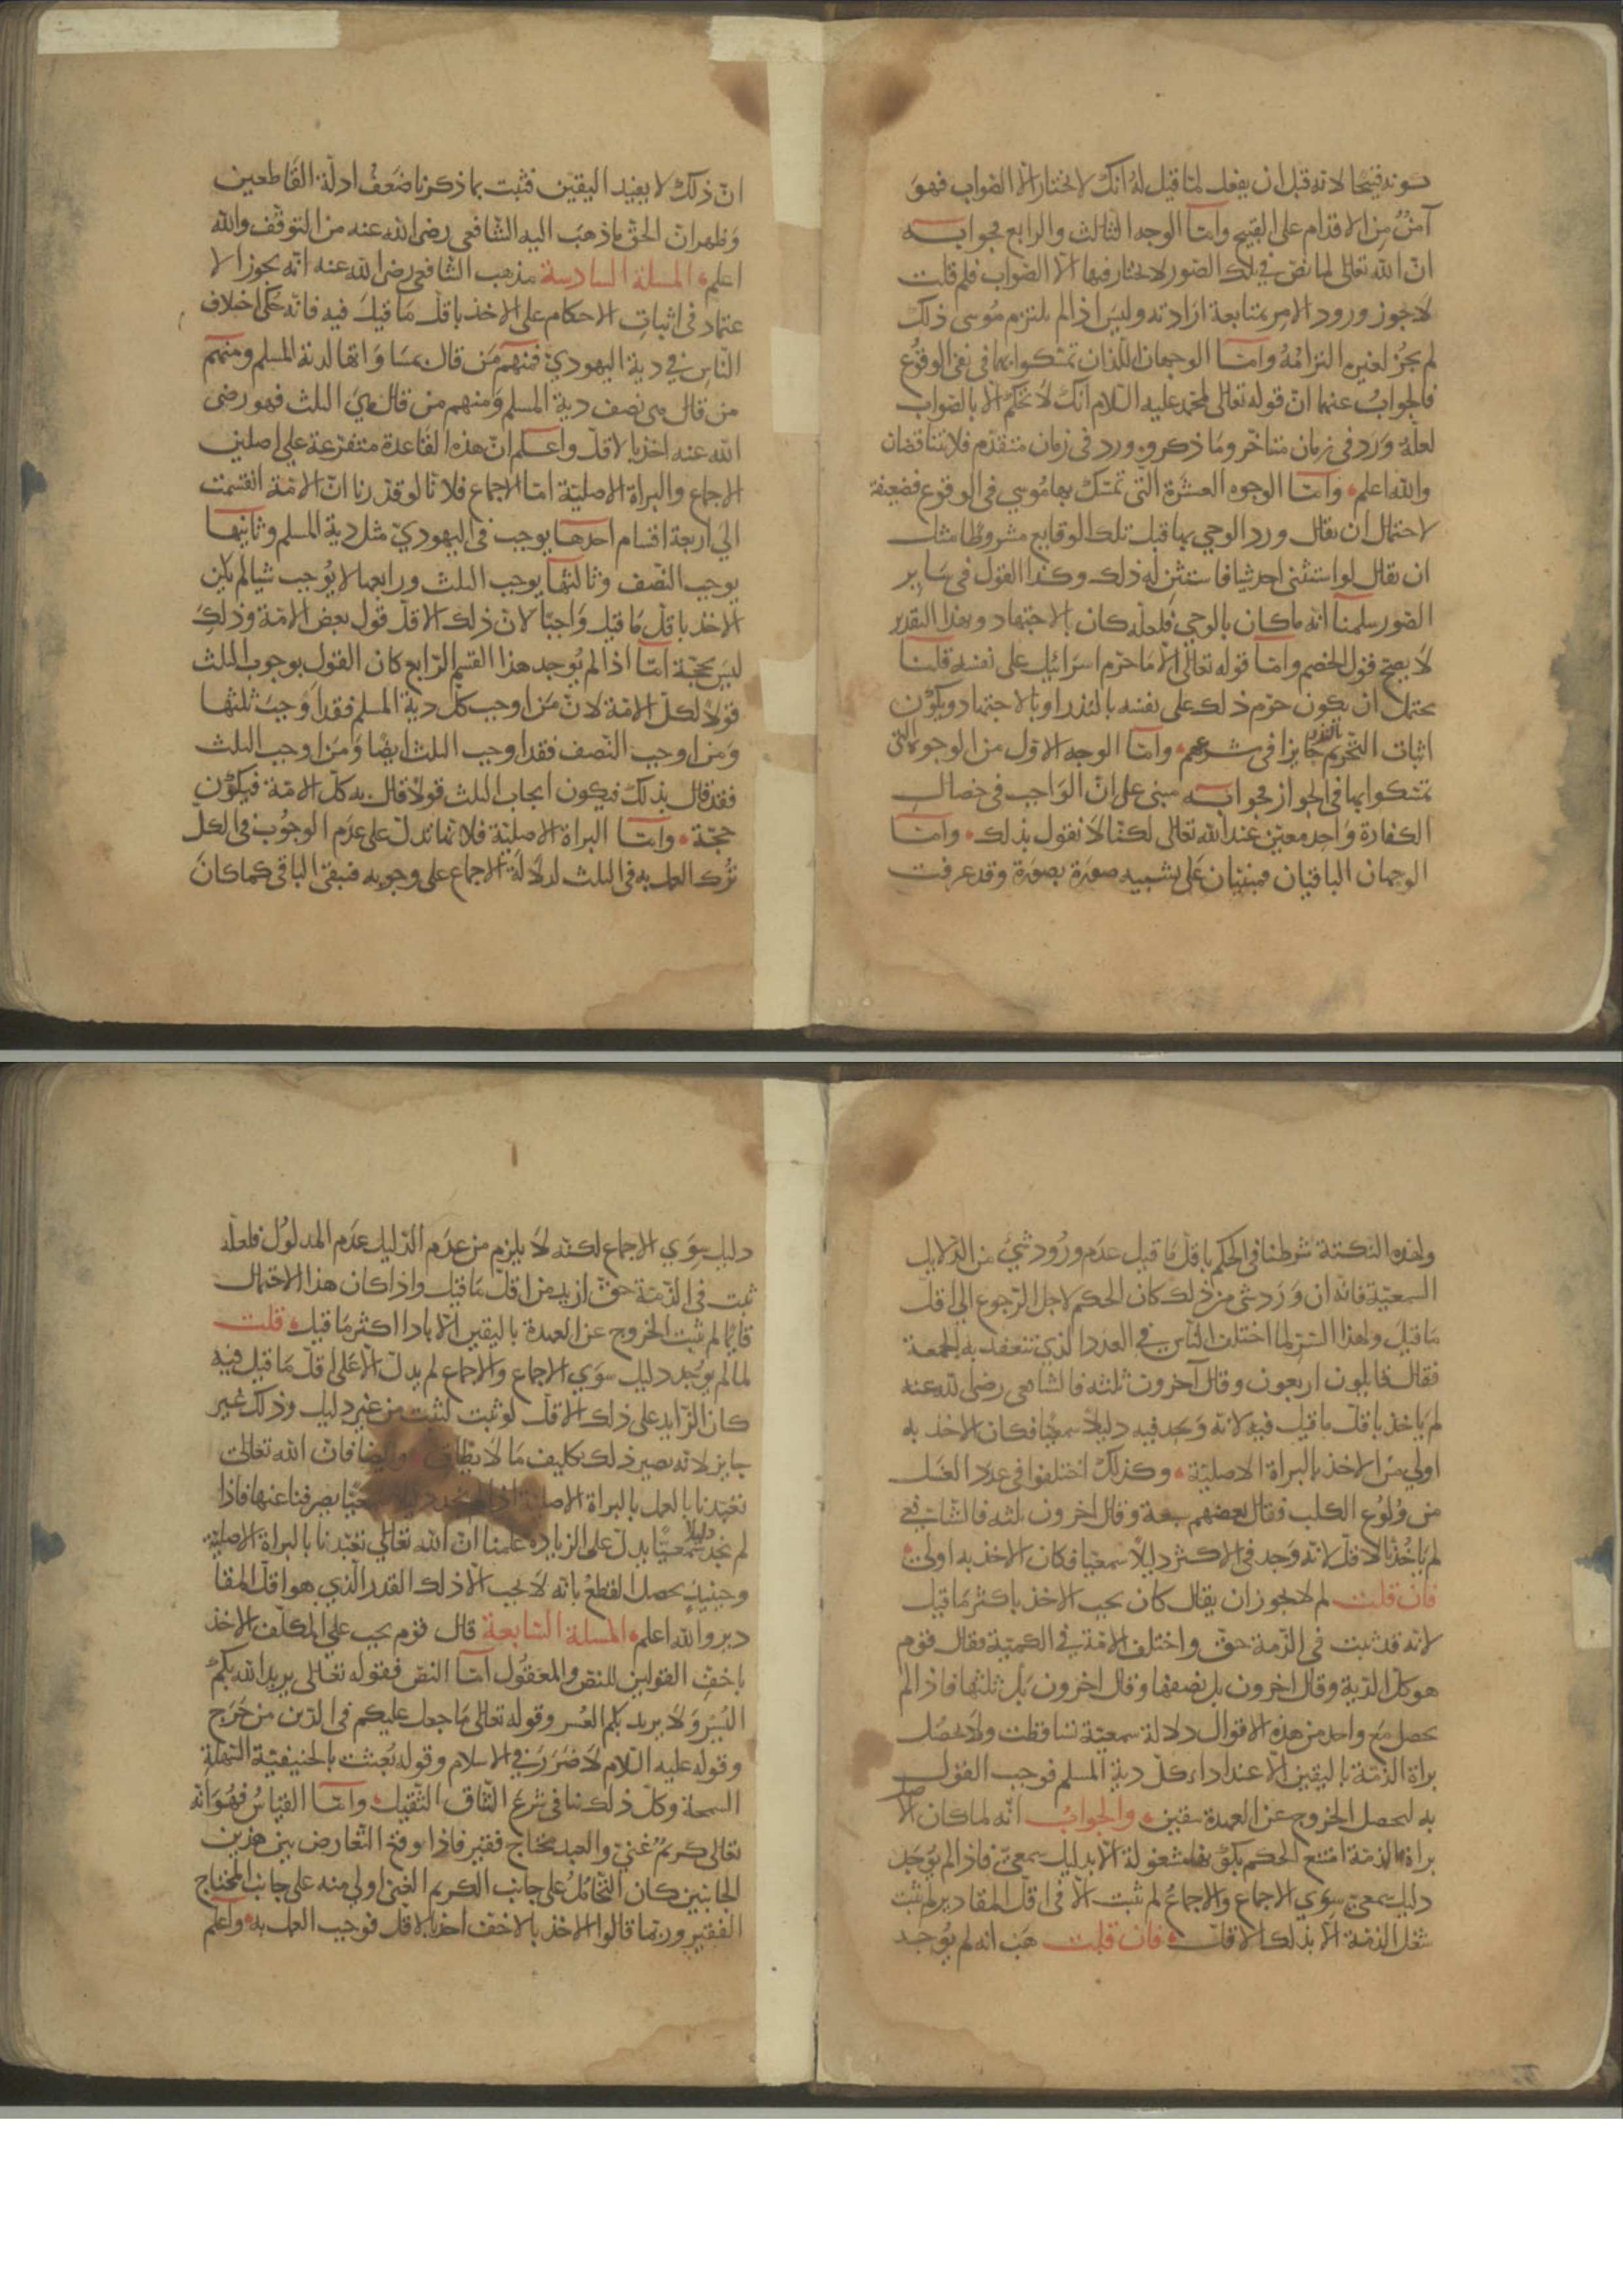 كونه قبيحا لانه قبل ان يفعل لما قيل له انك لا تختار الا الصواب فهو
آمن من الاقدام على القبيح وامّا الوجه الثالث والرابع فجوابه
ان الله تعالى لما نص في تلك الصور لا تختار فيها الا الصواب فلم قلت
لا يجوز ورود الامر بمتابعة ارادته وليس اذا لم يلتزم موسى ذلك
لم يجز لغيره التزامه وامّا الوجهان اللذان تمسكوا بهما في نفي الوقوع
فالجواب عنهما ان قوله تعالى لمحمد عليه السلام انك لا تحكم الا بالصواب
لعله ورد في زمان متاخر وما ذكروه ورد في زمان متقدم فلا يتناقضان
والله اعلم وامّا الوجوه العشرة التي تمسك بها موسي في الوقوع فضعيفة
لاحتمال ان يقال ورد الوحي بها قبل تلك الوقايع مشروطا مثل
ان يقال لو استثنى احد شيا فاستثن له ذلك وكذا القول في ساير
الصور سلمنا انه ما كان بالوحي فلعله كان بالاجتهاد وبهذا التقدير
لا يصح قول الخصم وامّا قوله تعالى الا ما حرم اسرائيل على نفسه قلنا
يحتمل ان يكون حرم ذلك على نفسه بالنذر او بالاجتهاد ويكون
اثبات التحريم بالنذر جايزا في شرعهم وامّا الوجه الاول من الوجوه التي
تمسكوا بها في الجواز فجوابه مبني على ان الواجب في خصال
الكفارة واحد معين عند الله تعالى لكنا لا نقول بذلك وامّا
الوجهان الباقيان فمبنيان على تشبيه صورة بصورة وقد عرفت
ان ذلك لا يفيد اليقين فثبت بما ذكرنا ضعف ادلة القاطعين
وظهر ان الحق ما ذهب اليه الشافعي رضى الله عنه من التوقف والله
اعلم المسلة السادسة مذهب الشافعي رضى الله عنه انه يجوز الا
عتماد في اثبات الاحكام على الاخذ باقل ما قيل فيه فانه حكى اختلاف
الناس في دية اليهودي فمنهم من قال بمساواتها لدية المسلم ومنهم
من قال هي نصف دية المسلم ومنهم من قال هي الثلث فهو رضى
الله عنه اخذ بالاقل واعلم ان هذه القاعدة متفرعة على اصلين
الاجماع والبراة الاصلية امّا الاجماع فلانا لو قدرنا ان الامة انقسمت
الي اربعة اقسام احدها يوجب في اليهودي مثل دية المسلم وثانيها
يوجب النصف وثالثها يوجب الثلث ورابعها لا يوجب شيا لم يكن
الاخذ باقل ما قيل واجبا لان ذلك الاقل قول بعض الامة وذلك
ليس بحجة امّا اذا لم يوجد هذا القسم الرابع كان القول بوجوب الثلث
قولا لكل الامة لان من اوجب كل دية المسلم فقد اوجب ثلثها
ومن اوجب النصف فقد اوجب الثلث ايضا ومن اوجب الثلث
فقد قال بذلك فيكون ايجاب الثلث قولا قال به كل الامة فيكون
حجة وامّا البراة الاصلية فلانها تدل على عدم الوجوب في الكل
ترك العمل به في الثلث لدلالة الاجماع على وجوبه فيبقى الباقي كما كان
ولهذه النكتة شرطنا في الحكم باقل ما قيل عدم ورود شي من الدلايل
السمعية فانه ان ورد شي من ذلك كان الحكم لاجله لا للرجوع الي اقل
ما قيل ولهذا السر لما اختلف الناس في العدد الذي تنعقد به الجمعة
فقال قايلون اربعون وقال آخرون ثلثة فالشافعي رضى الله عنه
لم ياخذ باقل ما قيل فيه لانه وجد فيه دليلا سمعيا فكان الاخذ به
اولي من الاخذ بالبراة الاصلية وكذلك اختلفوا في عدد الغسل
من ولوغ الكلب فقال بعضهم سبعة وقال اخرون ثلثه فالشافعي
لم ياخذ بالاقل لانه وجد في الاكثر دليلا سمعيا فكان الاخذ به اولى
فان قلت لم لا يجوز ان يقال كان يجب الاخذ باكثر ما قيل
لانه قد ثبت في الذمة حق واختلف الامة في الكمية فقال قوم
هو كل الدية وقال اخرون بل نصفها وقال اخرون بل ثلثها فاذا لم
يحصل مع واحد من هذه الاقوال دلالة سمعية تساقطت ولا تحصل
براة الذمة باليقين الا عند اداء كل دية المسلم فوجب القول
به ليحصل الخروج عن العهدة بيقين والجواب انه لما كان الاصل
براة الذمة امتنع الحكم بكونها مشغولة الا بدليل سمعي فاذا لم يوجد
دليل سمعي سوي الاجماع والاجماع لم يثبت الا في اقل المقادير لم يثبت
شغل الذمة الا بذلك الاقل فان قلت هب انه لم يوجد
دليل سوي الاجماع لكنه لا يلزم من عدم الدليل عدم المدلول فلعله
ثبت في الذمة حق ازيد من اقل ما قيل واذا كان هذا الاحتمال
قايما لم يثبت الخروج عن العهدة باليقين الا باداء اكثر ما قيل قلت
لما لم يوجد دليل سوي الاجماع والاجماع لم يدل الا على اقل ما قيل فيه
كان الزايد على ذلك الاقل لو ثبت لثبت من غير دليل وذلك غير
جايز لانه يصير ذلك تكليف ما لا يطاق وايضا فان الله تعالى
تعبدنا بالعمل بالبراة الاصلية اذا لم نجد دليلا سمعيا يصرفنا عنها فاذا
لم نجد دليلا سمعيا يدل على الزيادة علمنا ان الله تعالي تعبدنا بالبراة الاصلية
وحينيذ يحصل القطع بانه لا يجب الا ذلك القدر الذي هو اقل المقا
دير والله اعلم المسلة السابعة قال قوم يجب علي المكلف الاخذ
باخف القولين للنص والمعقول امّا النص فقوله تعالى يريد الله بكم
اليسر ولا يريد بكم العسر وقوله تعالى ما جعل عليكم في الدين من حرج
وقوله عليه السلام لا ضرر في الاسلام وقوله بعثت بالحنيفية السهلة
السمحة وكل ذلك ينافي شرع الشاق الثقيل وامّا القياس فهو انه
تعالى كريم غني والعبد محتاج فقير فاذا وقع التعارض بين هذين
الجانبين كان التحامل على جانب الكريم الغني اولي منه على جانب المحتاج
الفقير وربما قالوا الاخذ بالاخف اخذ بالاقل فوجب العمل به واعلم